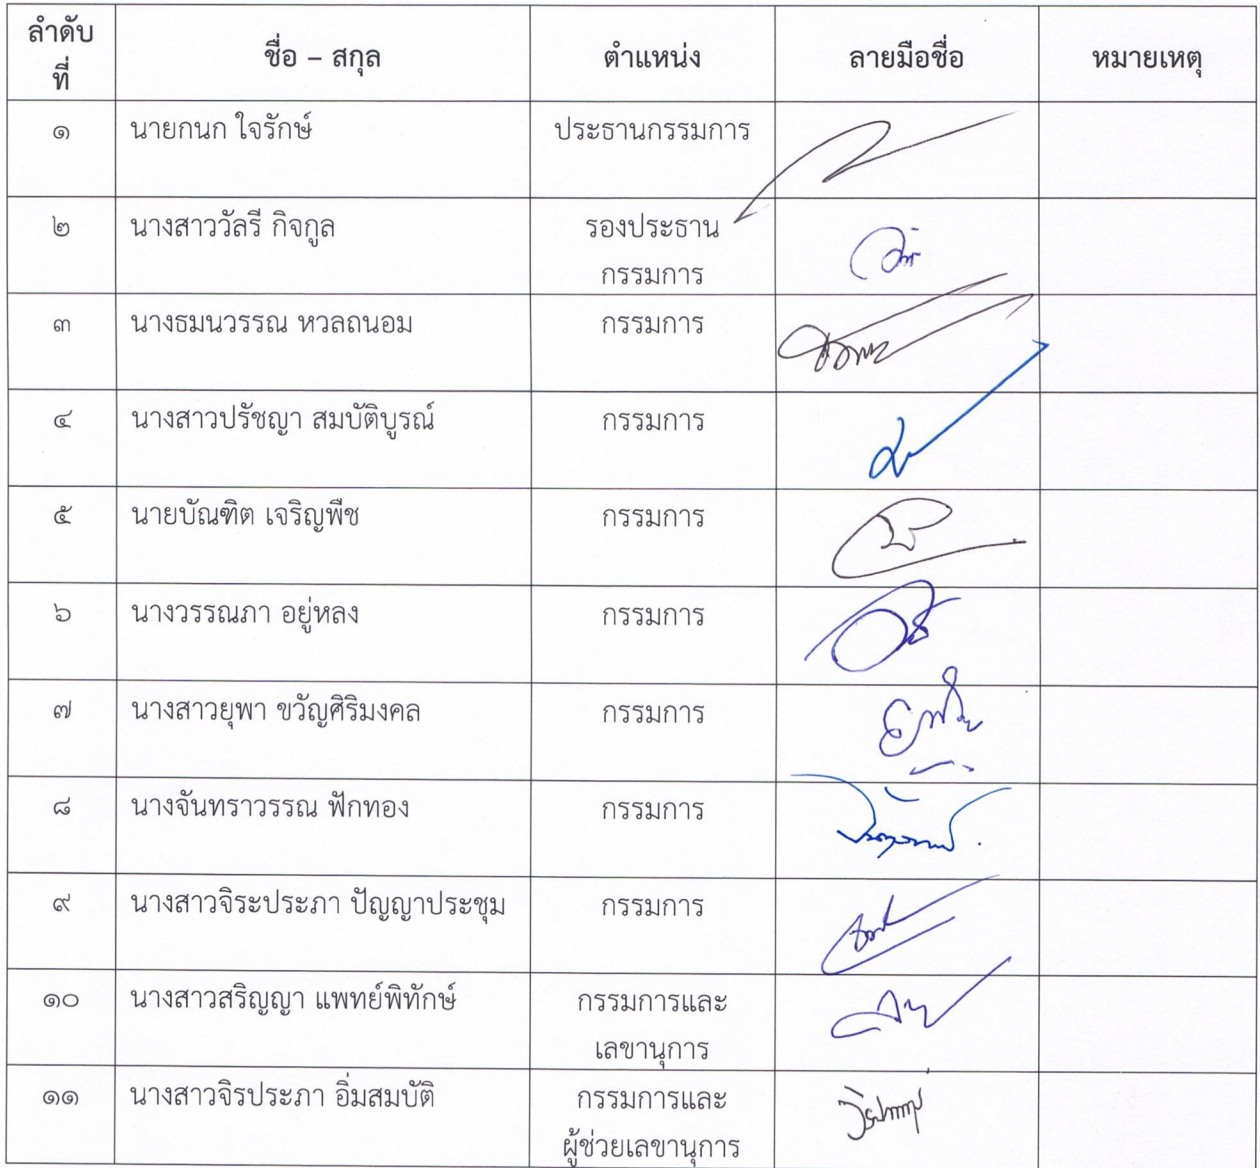 ลำดับ
ที่
ชื่อ – สกุล
ตำแหน่ง
ลายมือชื่อ
หมายเหตุ
๑ นายกนก ใจรักษ์ ประธานกรรมการ
๒ นางสาววัลรี กิจกูล รองประธาน
กรรมการ
๓ นางธมนวรรณ หวลถนอม กรรมการ
๔ นางสาวปรัชญา สมบัติบูรณ์ กรรมการ
๕ นายบัณฑิต เจริญพืช กรรมการ
๖ นางวรรณภา อยู่หลง กรรมการ
๗ นางสาวยุพา ขวัญศิริมงคล กรรมการ
๘ นางจันทราวรรณ ฟักทอง กรรมการ
๙ นางสาวจิระประภา ปัญญาประชุม กรรมการ
๑๐ นางสาวสริญญา แพทย์พิทักษ์ กรรมการและ
เลขานุการ
๑๑ นางสาวจิรประภา อิ่มสมบัติ กรรมการและ
ผู้ช่วยเลขานุการ